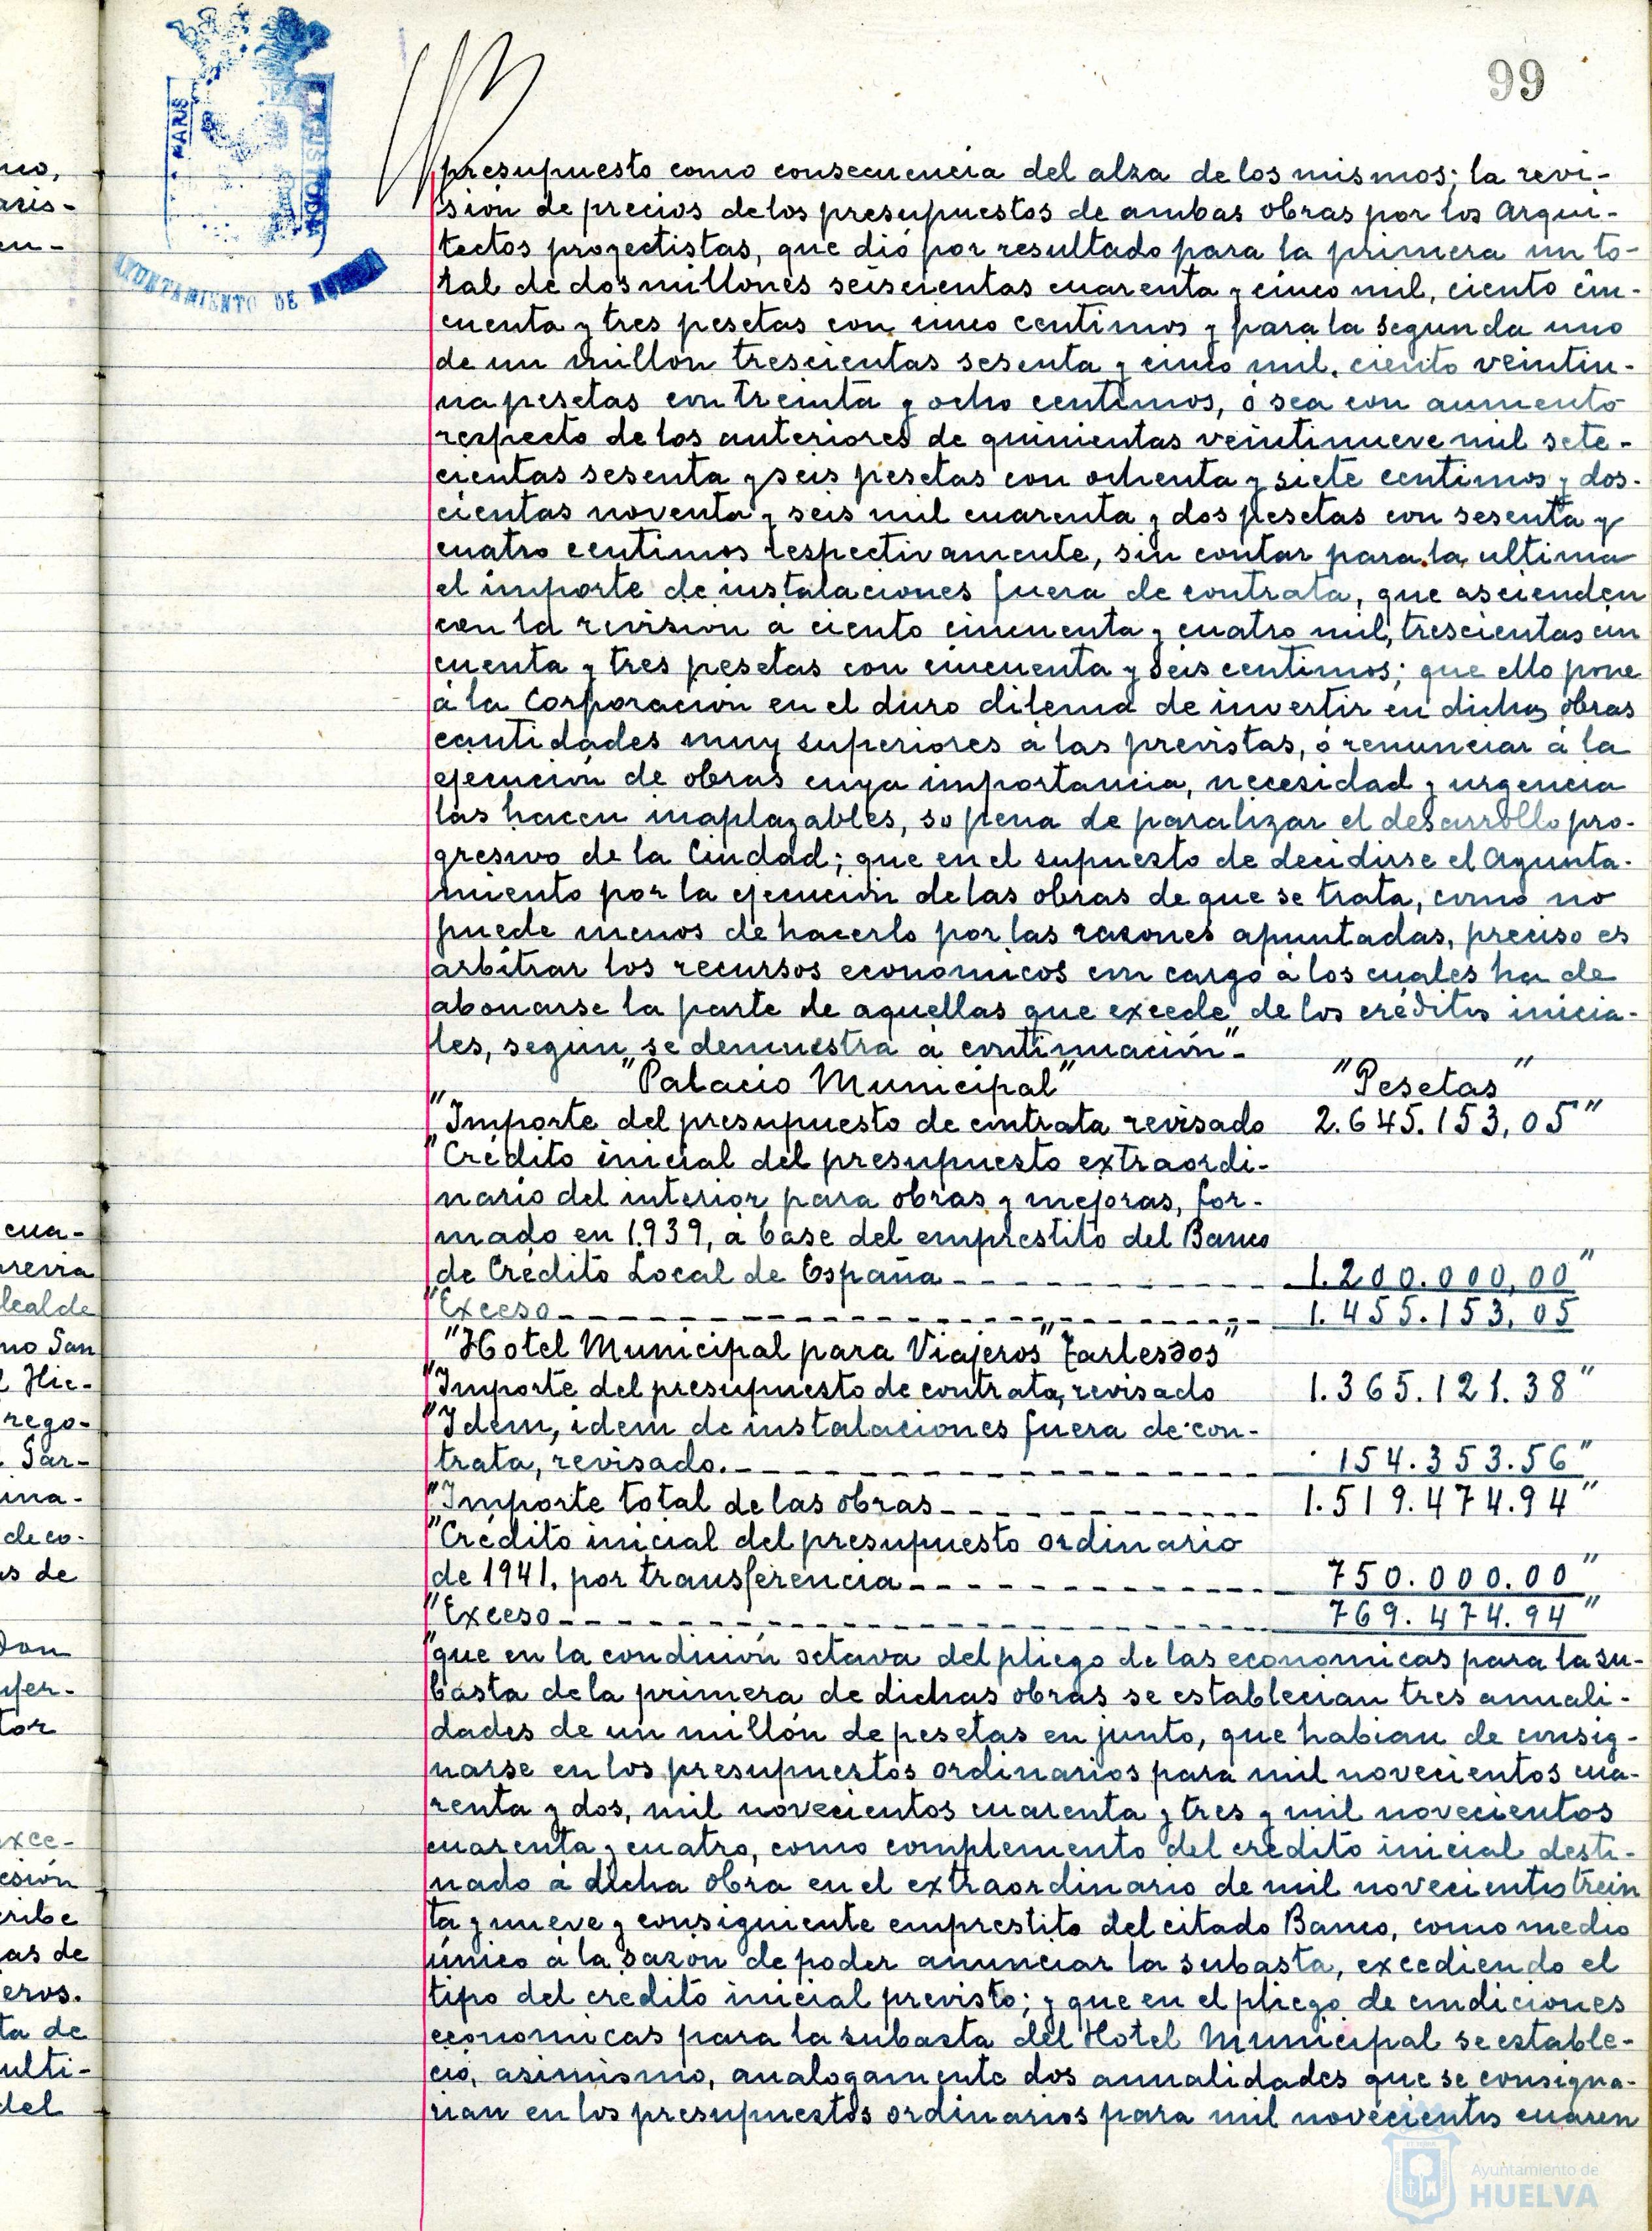 99
presupuesto como consecuencia del alza de los mismos; la revi-
sión de precios de los presupuestos de ambas obras por los Arqui-
tectos proyectistas, que dió por resultado para la primera un to-
tal de dos millones seiscientas cuarenta y cinco mil, ciento cin-
cuenta y tres pesetas con cinco centimos y para la segunda uno
de un millon trescientas sesenta y cinco mil, ciento veintiu-
na pesetas con treinta y ocho centimos, ó sea con aumento
respecto de los anteriores de quinientas veintinueve mil sete-
cientas sesenta y seis pesetas con ochenta y siete centimos y dos-
cientas noventa y seis mil cuarenta y dos pesetas con sesenta y
cuatro centimos respectivamente, sin contar para la ultima
el importe de instalaciones fuera de contrata, que ascienden
con la revision a ciento cincuenta y cuatro mil, trescientas cin
cuenta y tres pesetas con cincuenta y seis centimos; que ello pone
á la Corporación en el duro dilema de invertir en dichas obras
cantidades muy superiores á las previstas, ó renunciar á la
ejecución de obras cuya importancia, necesidad y urgencia
las hacen inaplazables, so pena de paralizar el desarrollo pro-
gresivo de la Ciudad; que en el supuesto de decidirse el Ayunta-
miento por la ejecución de las obras de que se trata, como no
puede menos de hacerlo por las razones apuntadas, preciso es
arbitrar los recursos economicos con cargo á los cuales ha de
abonarse la parte de aquellas que excede de los créditos inicia-
les, según se demuestra á continuación"-
"Palacio Municipal" "Pesetas"
"Importe del presupuesto de contrata revisado 2.645.153,05"
"Crédito inicial del presupuesto extraordi-
nario del interior para obras y mejoras, for-
mado en 1.939, á base del emprestito del Banco
de Crédito Local de España 1.200.000,00"
"Exceso 1.455.153,05
"Hotel Municipal para Viajeros "Tartessos"
"Importe del presupuesto de contrata, revisado 1.365.121.38"
"Idem, idem de instalaciones fuera de con-
trata, revisado. 154.353.56"
"Importe total de las obras 1.519.474.94"
"Crédito inicial del presupuesto ordinario
de 1941, por transferencia 750.000.00"
"Exceso 769.474.94"
"que en la condición octava del pliego de las economicas para la su-
basta de la primera de dichas obras se establecian tres anuali-
dades de un millón de pesetas en junto, que habian de consig-
narse en los presupuestos ordinarios para mil novecientos cua-
renta y dos, mil novecientos cuarenta y tres y mil novecientos
cuarenta y cuatro, como complemento del crédito inicial desti-
nado á dicha obra en el extraordinario de mil novecientos trein
ta y nueve y consiguiente emprestito del citado Banco, como medio
único á la sazón de poder anunciar la subasta, excediendo el
tipo del credito inicial previsto; y que en el pliego de condiciones
economicas para la subasta del Hotel Municipal se estable-
ció, asimismo, analogamente dos anualidades que se consigna-
rian en los presupuestos ordinarios para mil novecientos cuaren
AYUNTAMIENTO DE HUELVA
Ayuntamiento de
HUELVA